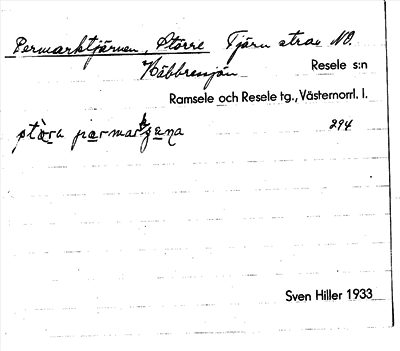 Permarktjärnen, Större Tjärn strax NO.
Häbbresjön Resele s:n
Ramsele och Resele tg., Västernorrl. l.
294
Sven Hiller 1933